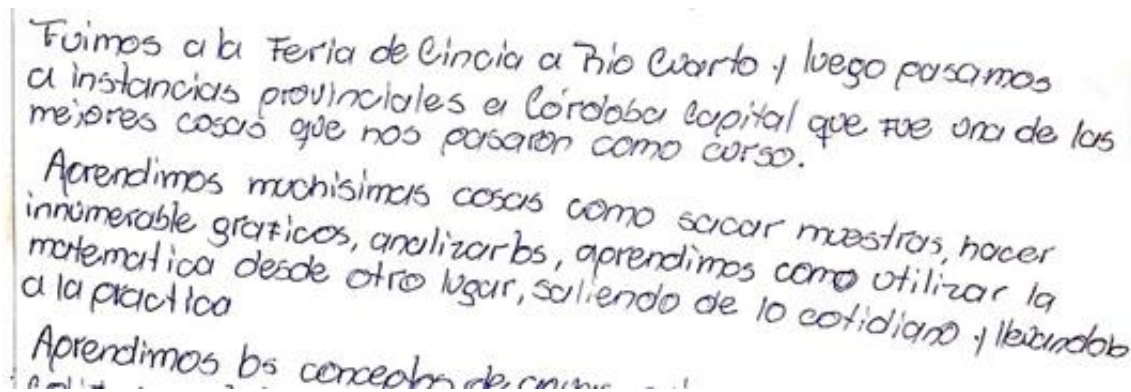 Fuimos a la Feria de Cincia a Rio Cuarto y luego pasamos
a instancias provinciales a Córdoba Capital que fue una de las
mejores cosas que nos pasaron como curso.
Aprendimos muchisimas cosas como sacar muestras, hacer
innumerable graficos, analizarlos, aprendimos como utilizar la
matematica desde otro lugar, saliendo de lo cotidiano y llevandolo
a la practica
Aprendimos los conceptos de